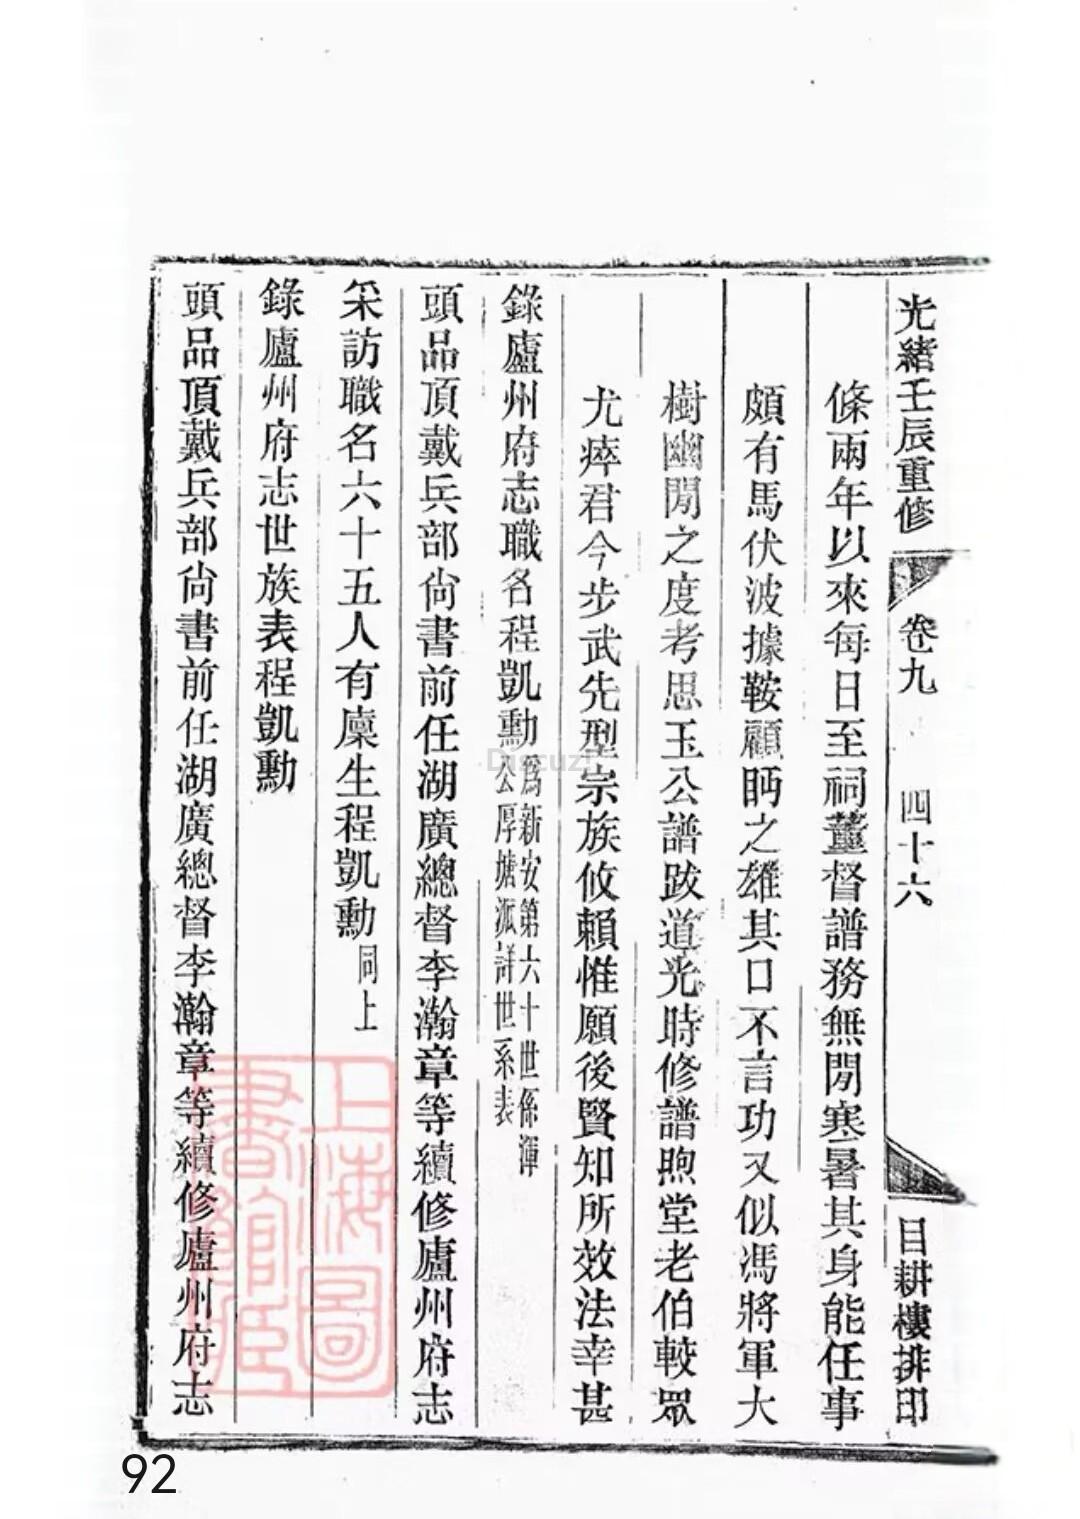 光緒壬辰重修 卷九 四十六 目耕樓排印
條兩年以來每日至祠董督譜務無閒寒暑其身能任事
頗有馬伏波據鞍顧眄之雄其口不言功又似馮將軍大
樹幽閒之度考思玉公譜跋道光時修譜煦堂老伯較眾
尤瘁君今步武先型宗族攸賴惟願後賢知所效法幸甚
錄廬州府志職名程凱勳為新安第六十世係渾
公厚塘派詳世系表
頭品頂戴兵部尚書前任湖廣總督李瀚章等續修廬州府志
采訪職名六十五人有廩生程凱勳同上
錄廬州府志世族表程凱勳
頭品頂戴兵部尚書前任湖廣總督李瀚章等續修廬州府志
上海圖
書館藏
Discuz!
92